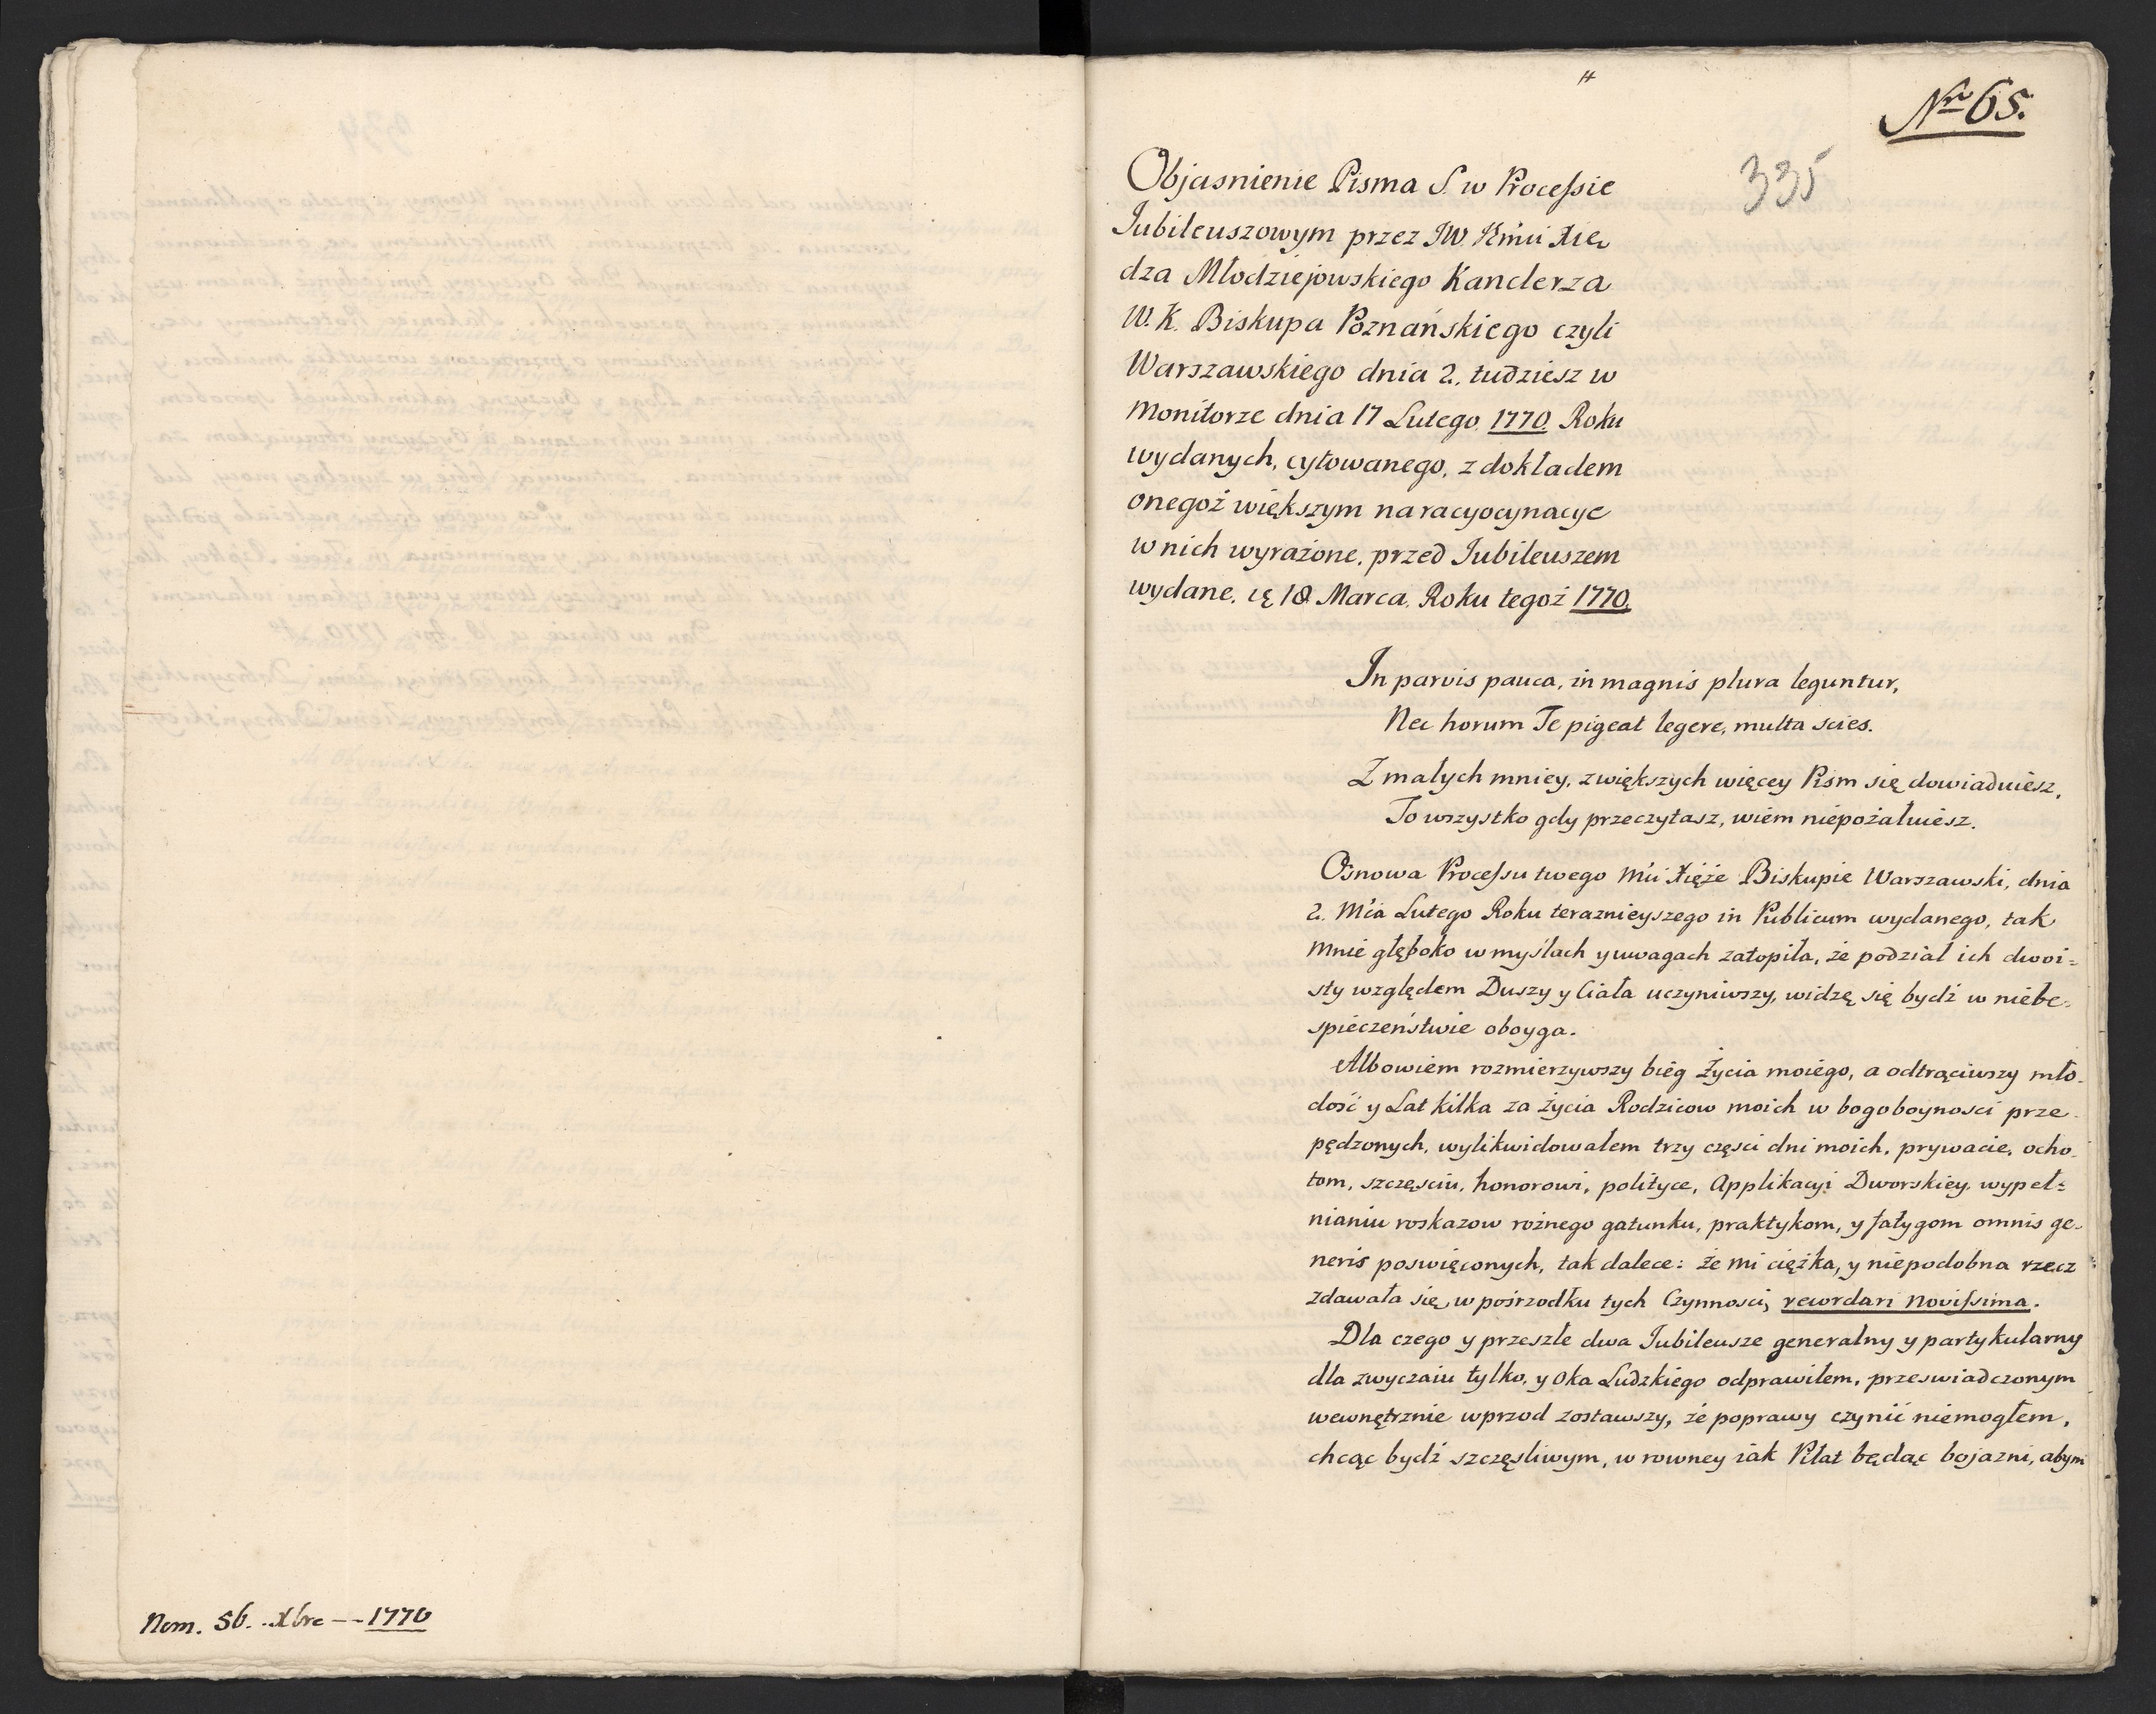 Nom. 56. Xbre -- 1770
H
Nro 65.
335
Objasnienie Pisma S. w Processie
Jubileuszowym przez JW Jmći Xię
dza Młodziejowskiego Kanclerza
W. K. Biskupa Poznańskiego czyli
Warszawskiego dnia 2., tudziesz w
Monitorze dnia 17 Lutego 1770. Roku
wydanych, cytowanego, z dokładem
onegoż większym na racyocynacye
w nich wyrażone, przed Jubileuszem
wydane. 18 Marca. Roku tegoż 1770.
In parvis pauca, in magnis plura leguntur,
Nec horum Te pigeat legere, multa scies.
Z małych mniey, z większych więcey Pism się dowiaduiesz,
To wszystko gdy przeczytasz, wiem niepożałuiesz.
Osnowa Processu twego Mći Xięże Biskupie Warszawski, dnia
2. Mća Lutego Roku teraznieyszego in Publicum wydanego, tak
mnie głęboko w myślach y uwagach zatopiła, że podział ich dwoi=
sty względem Duszy y Ciała uczyniwszy, widzę się bydź w niebe=
spieczeństwie oboyga.
Albowiem rozmierzywszy bieg życia moiego, a odtrąciwszy mło-
dość y Lat kilka za życia Rodzicow moich w bogoboynosci prze-
pędzonych, wylikwidowałem trzy częsci dni moich, prywacie, ocho-
tom, szczęsciu, honorowi, polityce, Applikacyi Dworskiey, wypeł=
nianiu roskazow rożnego gatunku, praktykom, y fatygom omnis ge-
neris poswięconych, tak dalece: że mi ciężka, y niepodobna rzecz
zdawała się, w pośrzodku tych Czynnosci, recordari Novissima.
Dla czego y przeszłe dwa Jubileusze generalny y partykularny
dla zwyczaiu tylko, y oka Ludzkiego odprawiłem, przeswiadczonym
wewnętrznie wprzod zostawszy, że poprawy czynić niemogłem,
chcąc bydź szczęsliwym, w rowney iak Piłat będąc bojazni, abym